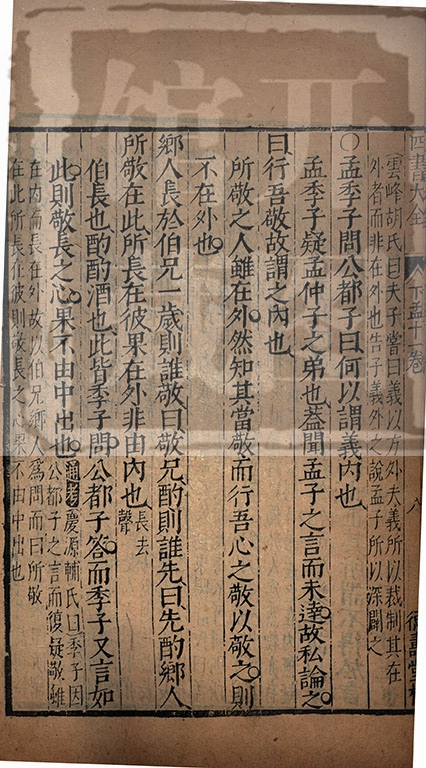 四書大全 下孟十一卷 八
雲峰胡氏曰夫子嘗曰義以方外夫義所以裁制其在
外者而非在外也告子義外之說孟子所以深闢之
○孟季子問公都子曰何以謂義內也
孟季子疑孟仲子之弟也葢聞孟子之言而未達故私論之
曰行吾敬故謂之內也
所敬之人雖在外然知其當敬而行吾心之敬以敬之則
不在外也
鄉人長於伯兄一歲則誰敬曰敬兄酌則誰先曰先酌鄉人
所敬在此所長在彼果在外非由內也 長去聲
伯長也酌酌酒也此皆季子問公都子答而季子又言如
此則敬長之心果不由中出也 通考 慶源輔氏曰季子因
公都子之言而復疑敬雖
在內而長在外故以伯兄鄉人為問而曰所敬
在此所長在彼則敬長之心果不由中出也